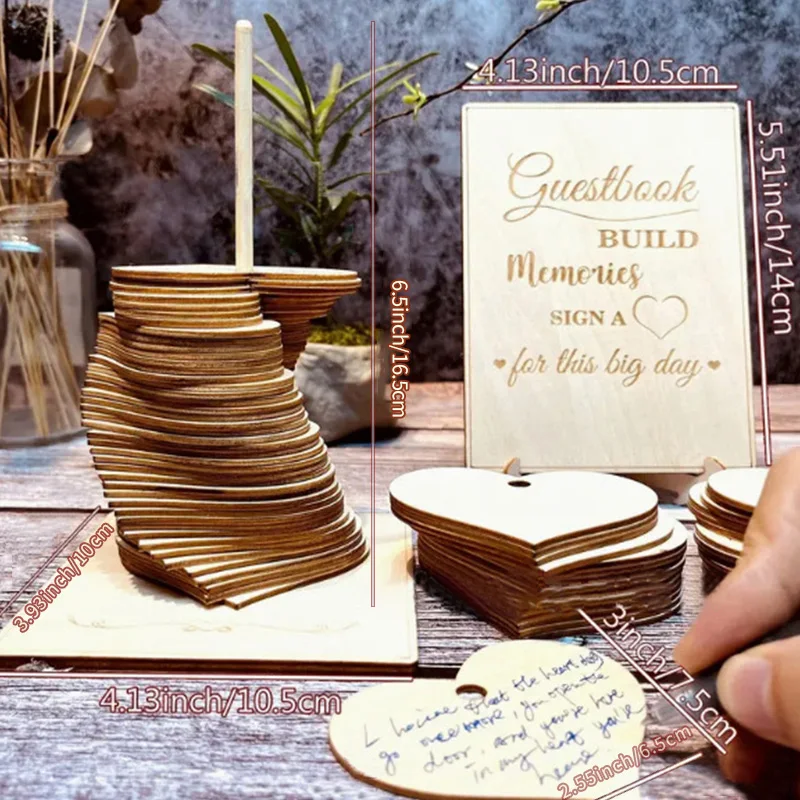 4.13inch/10.5cm
5.51inch/14cm
Guestbook
BUILD
Memories
SIGN A
for this big day
6.5inch/16.5cm
3.93inch/10cm
4.13inch/10.5cm
3inch/7.5cm
2.55inch/6.5cm
the heart
go
door, and you're
in my heart